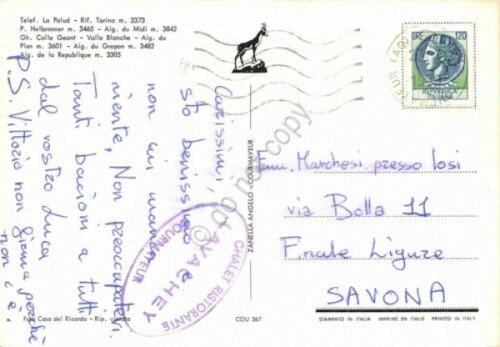 Telef. La Palud - Rif. Torino m. 3373
P. Helbronner m. 3465 - Aig. du Midi m. 3842
Gh. Colle Geant - Valle Blanche - Aig. du
Plan m. 3601 - Aig. du Grepon m. 3482
Aig. de la Republique m. 3305
Carissimi,
sto benissimo e
non mi manca
niente, Non preoccupatevi
Tanti bacioni a tutti
dal vostro Luca
P.S. Vittorio non perchè
non c'è.
CHALET RISTORANTE
LAVACHEY
COURMAYEUR
ZANELLA ANGELO - COURMAYEUR
LIRE 120
Fam. Marchesi presso Iosi
via Bolla 11
Finale Ligure
SAVONA
Foto Casa del Ricordo - Rip. vietata
COU 367
STAMPATO IN ITALIA IMPRIME EN ITALIE PRINTED IN ITALY
© do not copy